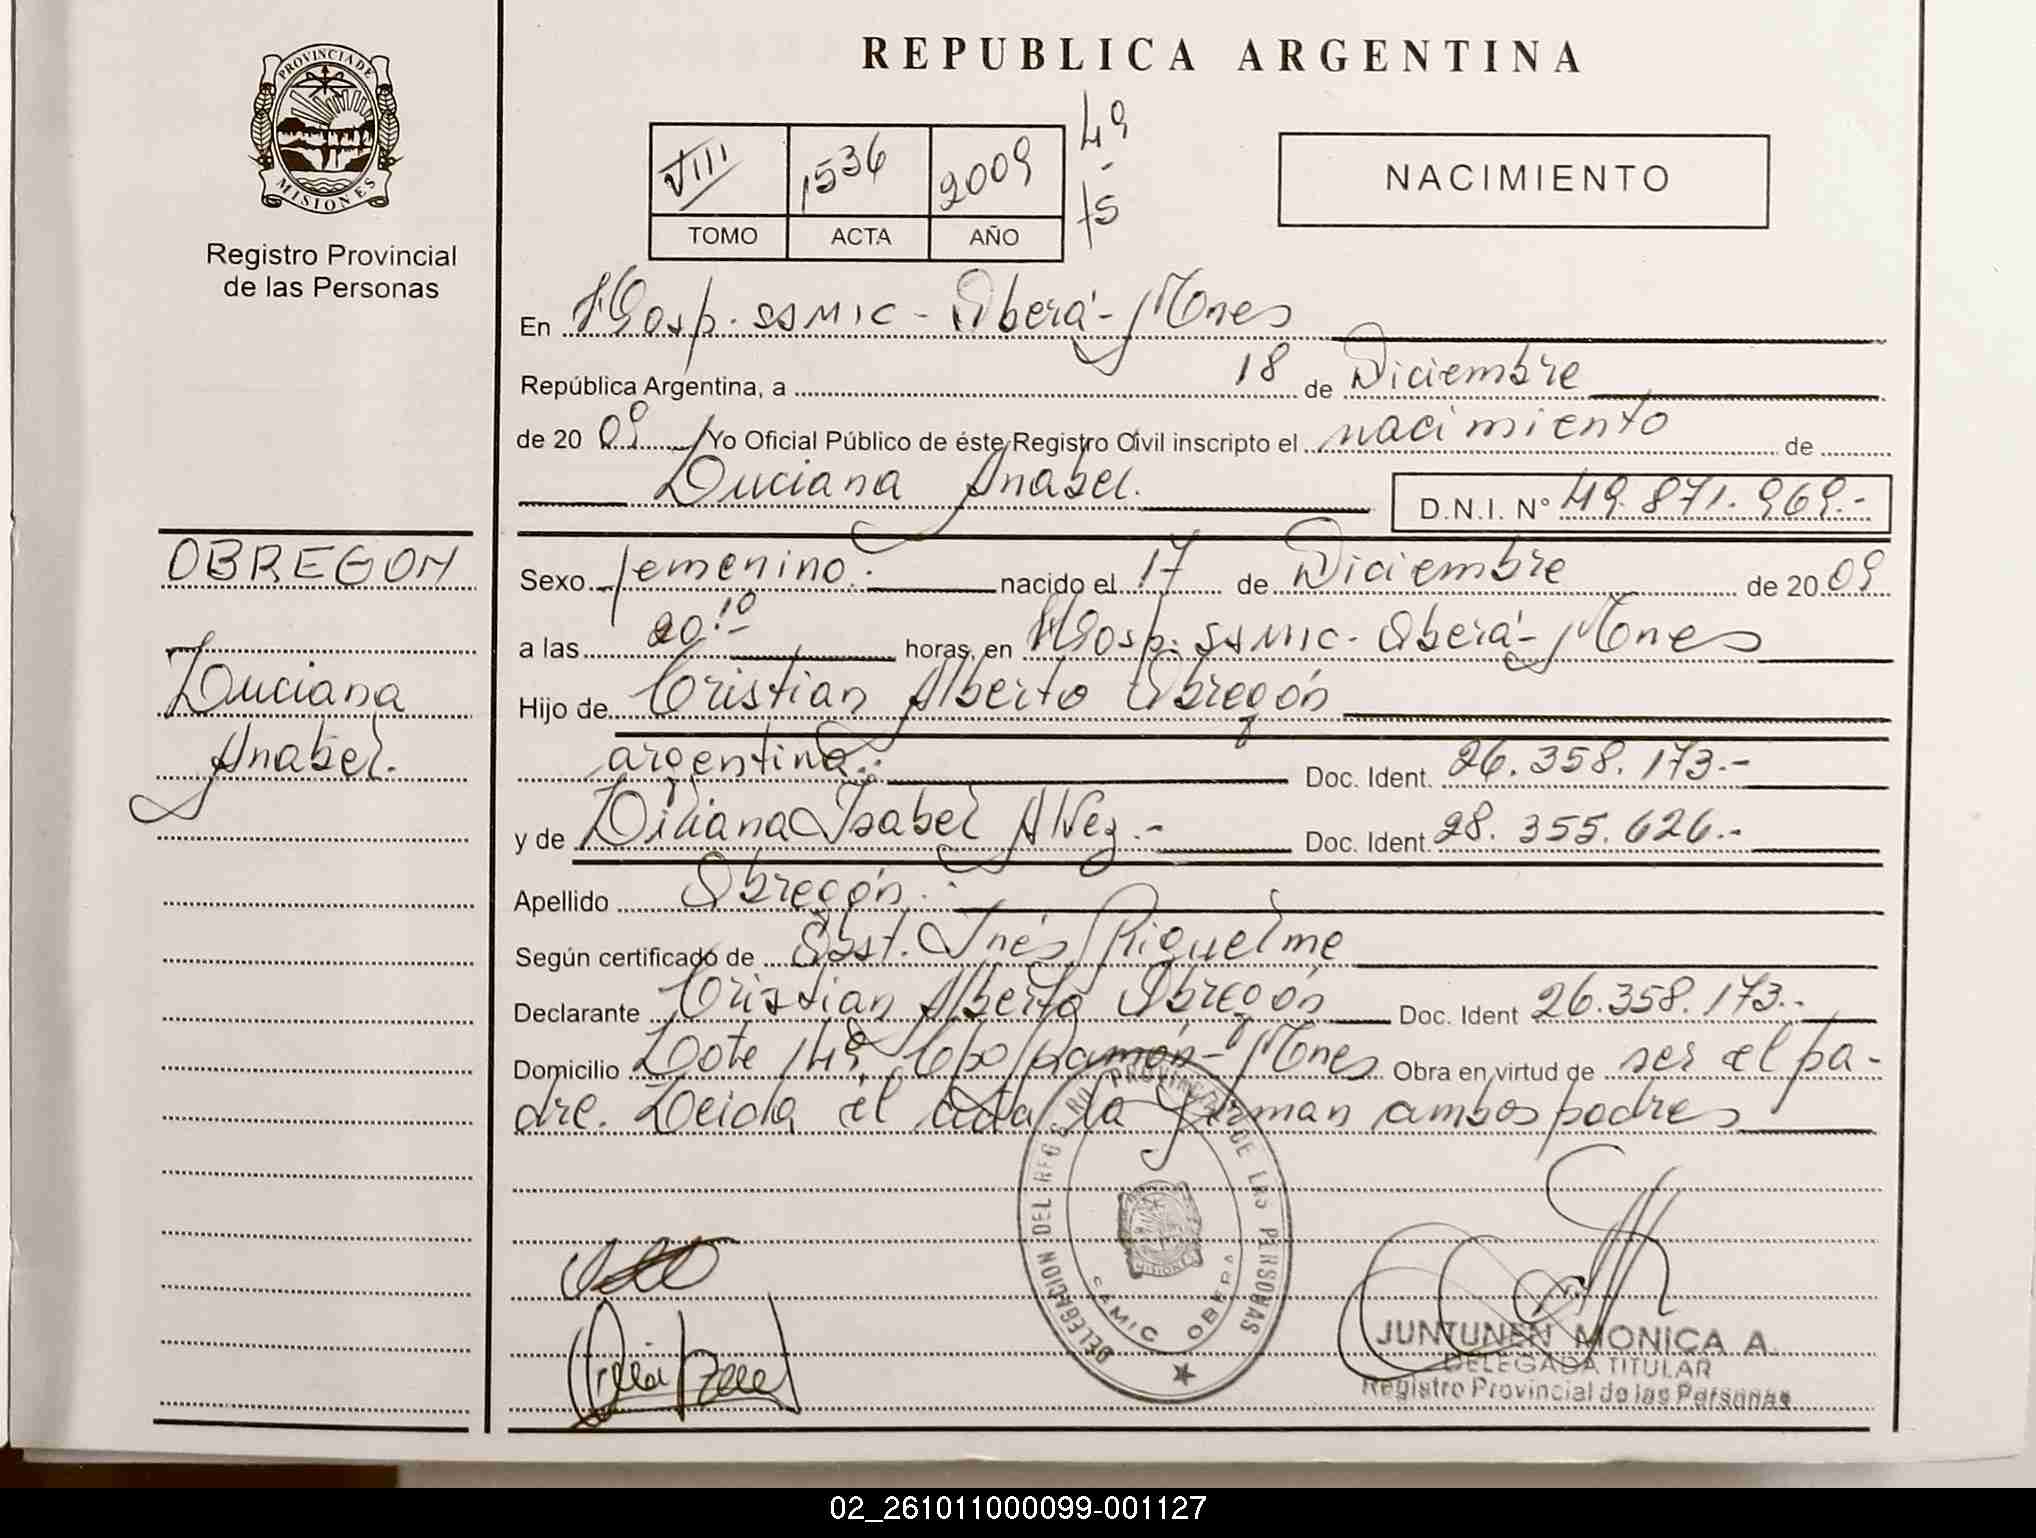 REPUBLICA ARGENTINA
PROVINCIA DE
MISIONES
Registro Provincial
de las Personas
VIII 1536 2009
TOMO ACTA AÑO
49
-
75
NACIMIENTO
En Hosp. SSMIC - Oberá - Mnes
República Argentina, a 18 de Diciembre
de 20 09 Yo Oficial Público de éste Registro Civil inscripto el nacimiento de
Luciana Anabel.
D.N.I. Nº 49.871.969.-
OBREGON
Luciana
Anabel.
Sexo femenino.- nacido el 17 de Diciembre de 20 09
a las 20:10 horas, en Hosp. SSMIC - Oberá - Mnes
Hijo de Cristian Alberto Obregón
argentina.- Doc. Ident. 26.358.173.-
y de Liliana Isabel Alvez.- Doc. Ident. 28.355.626.-
Apellido Obregón.-
Según certificado de Obst. Inés Riquelme
Declarante Cristian Alberto Obregón Doc. Ident 26.358.173.-
Domicilio Lote 149, Cpo Ramón - Mnes Obra en virtud de ser el pa-
dre. Leida el acta la firman ambos padres
DELEGACION DEL REG RO PROVINCIAL DE LAS PERSONAS
MISIONES
SAMIC OBERA
JUNTUNEN MONICA A.
DELEGADA TITULAR
Registro Provincial de las Personas
02_261011000099-001127